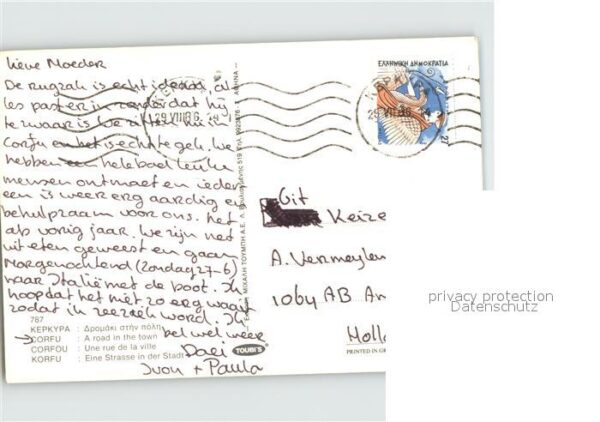 Lieve Moeder
De rugzak is echt ideaal, al
les past er in zonder dat hij
te zwaar is. We zitten nu in
Corfu en het is echt te gek. We
hebben een heleboel leuke
mensen ontmoet en ieder
een is weer erg aardig en
behulpzaam voor ons. Net
als vorig jaar. We zijn net
uit eten geweest en gaan
Morgenochtend (Zondag 27-6)
naar Italië met de boot. Ik
hoop dat het niet zo erg waait
zodat ik zeeziek word. Ik
bel wel weer
Doei
Ivon + Paula
787
ΚΕΡΚΥΡΑ : Δρομάκι στήν πόλη
→ CORFU : A road in the town
CORFOU : Une rue de la ville
KORFU : Eine Strasse in der Stadt
TOUBI'S
ΜΙΧΑΛΗ ΤΟΥΜΠΗ Α.Ε.
519 ΤΗΛ. 9923876 ΑΘΗΝΑ
ΕΛΛΗΝΙΚΗ ΔΗΜΟΚΡΑΤΙΑ
27
29 VII 86
29 VII 86
Git
Keize
A. Vermeylen
1064 AB Am
Holla
PRINTED IN GR
privacy protection
Datenschutz